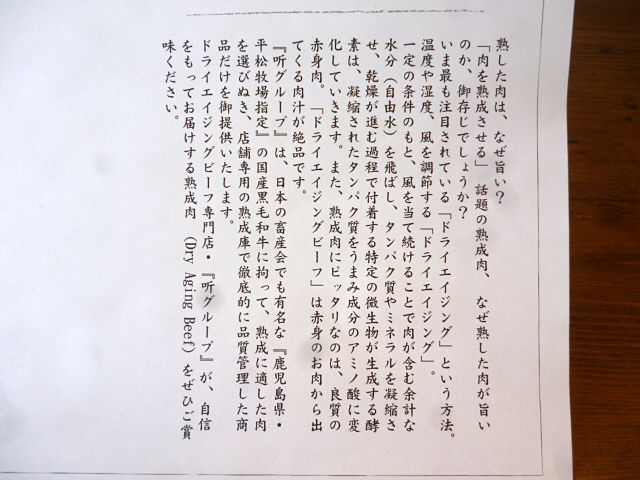 熟した肉は、なぜ旨い？
「肉を熟成させる」　話題の熟成肉、　なぜ熟した肉が旨い
のか、御存じでしょうか？
いま最も注目されている「ドライエイジング」という方法。
温度や湿度、風を調節する「ドライエイジング」。
一定の条件のもと、風を当て続けることで肉が含む余計な
水分（自由水）を飛ばし、タンパク質やミネラルを凝縮さ
せ、乾燥が進む過程で付着する特定の微生物が生成する酵
素は、凝縮されたタンパク質をうまみ成分のアミノ酸に変
化していきます。また、熟成肉にピッタリなのは、良質の
赤身肉。「ドライエイジングビーフ」は赤身のお肉から出
てくる肉汁が絶品です。
『听グループ』は、日本の畜産会でも有名な『鹿児島県・
平松牧場指定』の国産黒毛和牛に拘って、熟成に適した肉
を選びぬき、店舗専用の熟成庫で徹底的に品質管理した商
品だけを御提供いたします。
ドライエイジングビーフ専門店・『听グループ』が、自信
をもってお届けする熟成肉　（Dry Aging Beef）をぜひご賞
味ください。